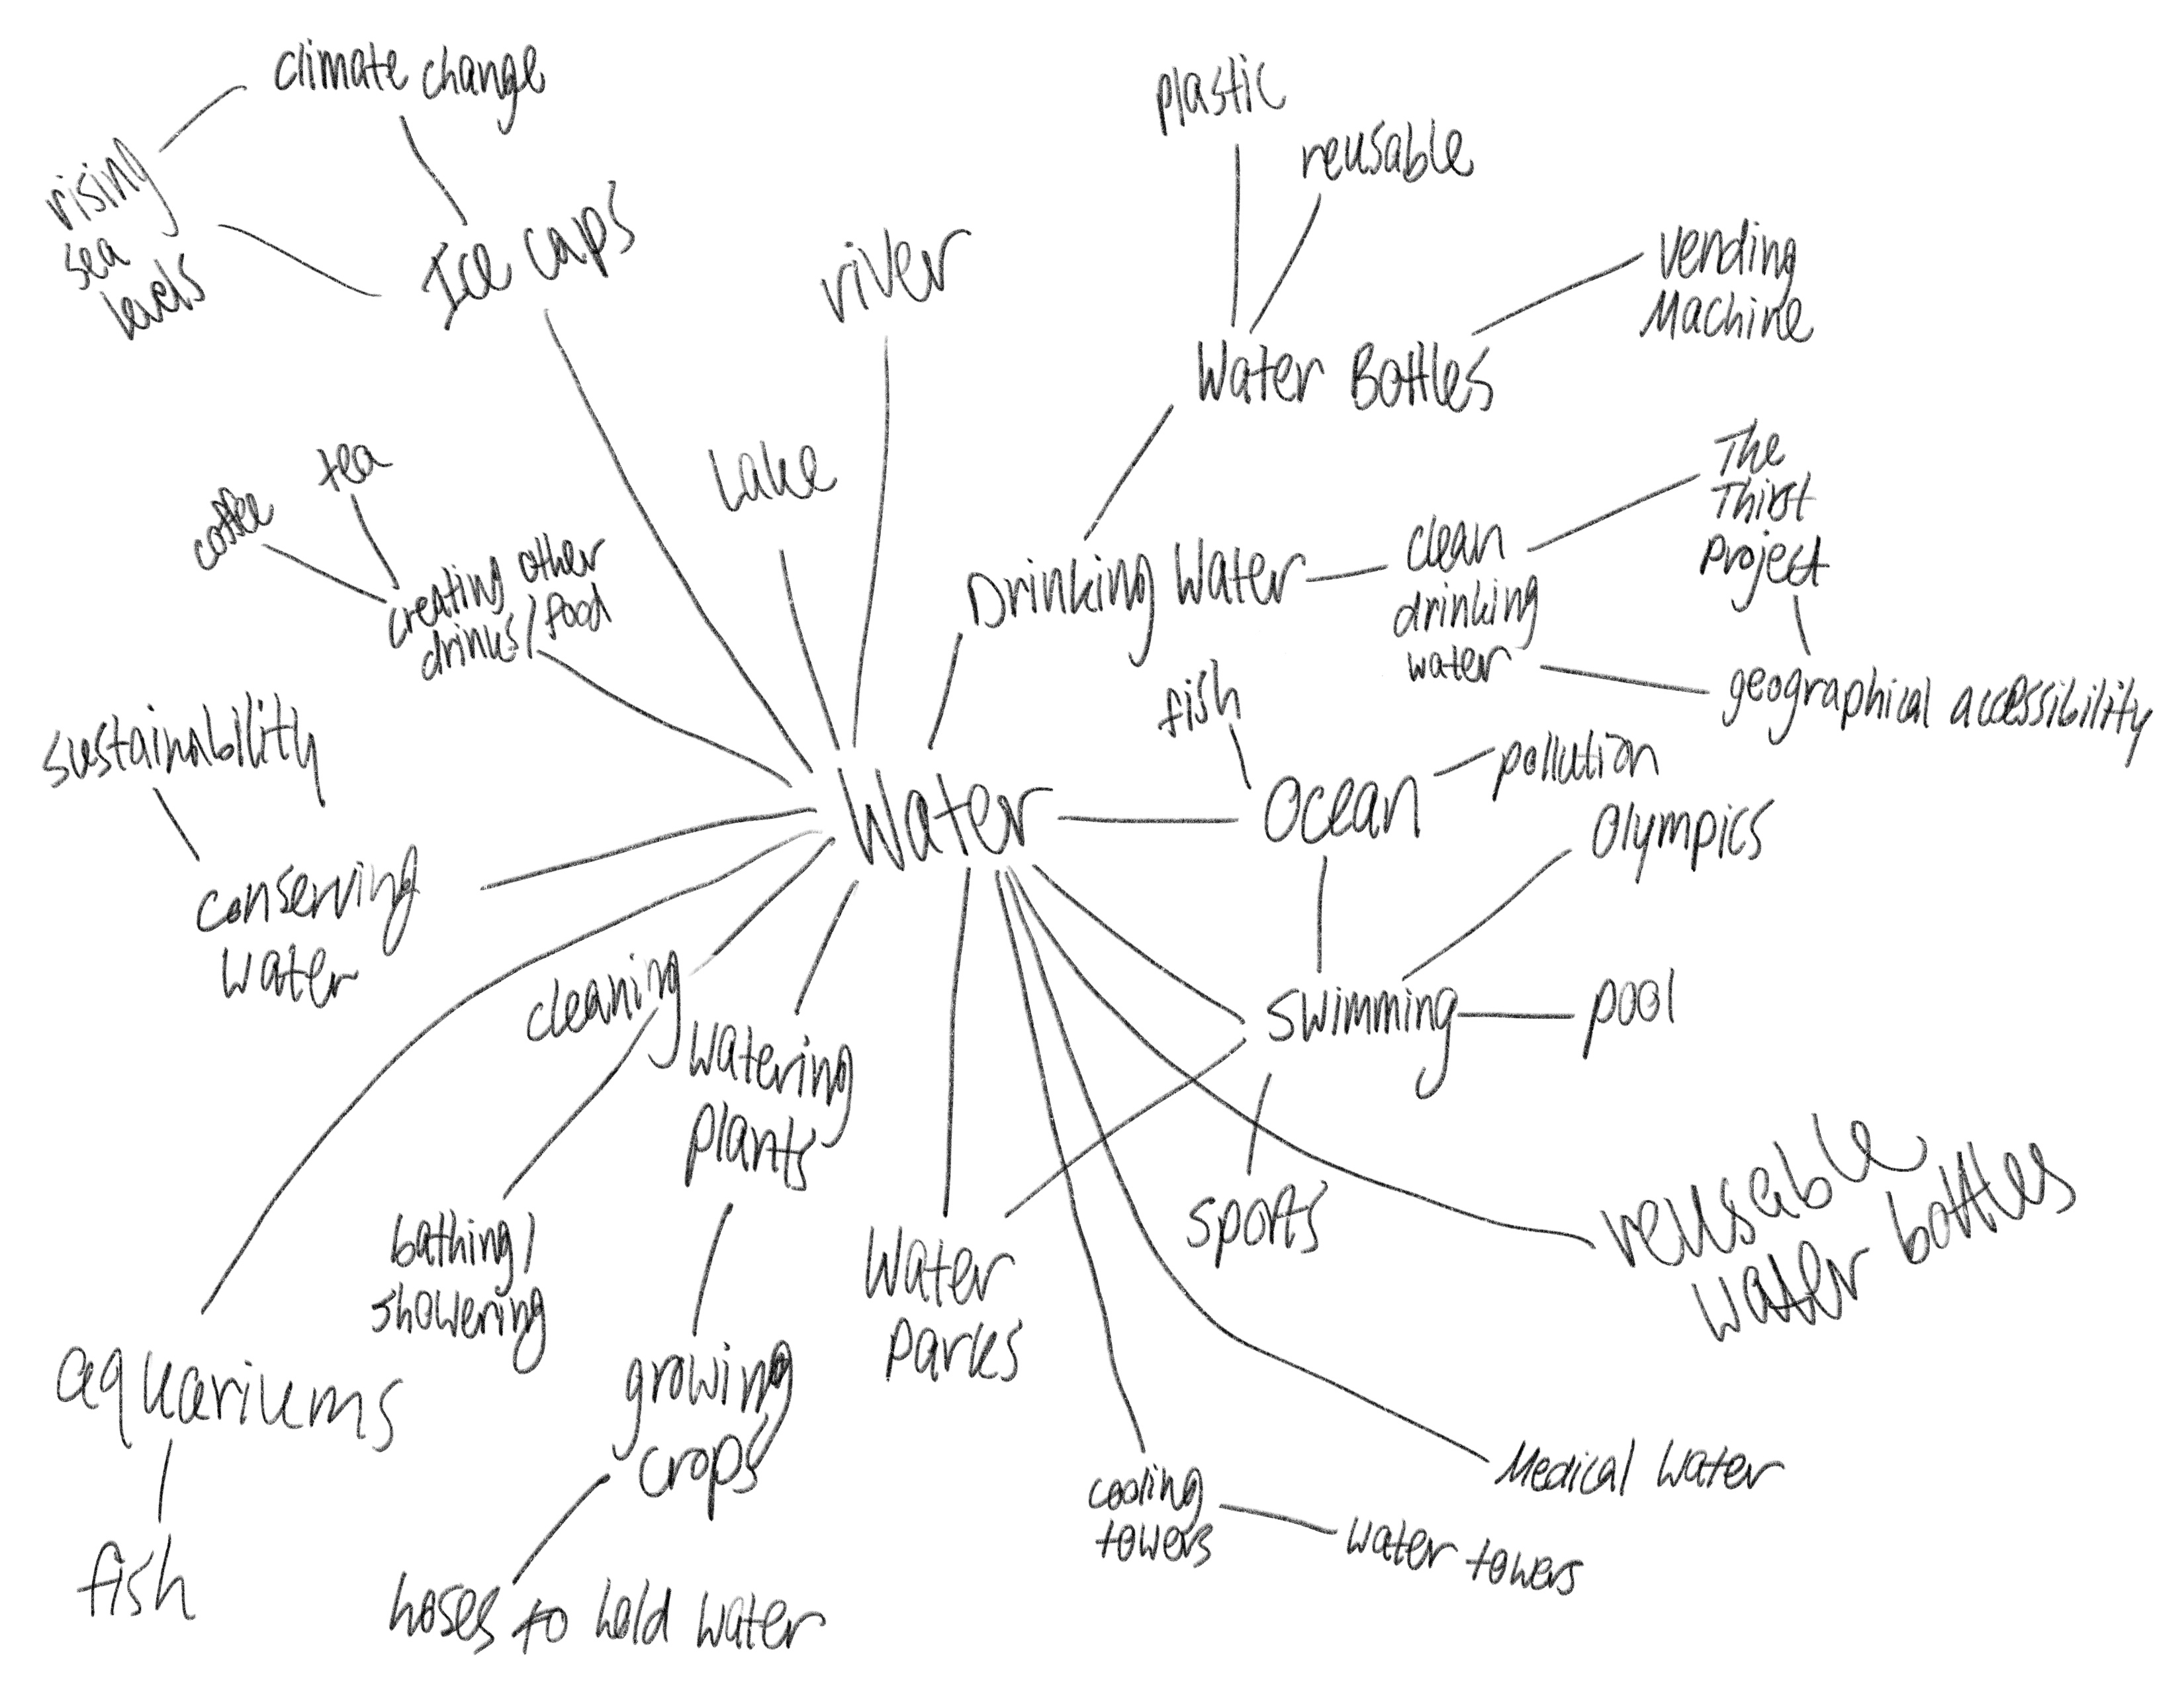 climate change
rising
sea
levels
Ice caps
river
Lake
tea
coffee
creating other
drinks/food
plastic
reusable
vending
Machine
Water Bottles
The
Thirst
Project
Drinking Water
clean
drinking
water
geographical accessibility
fish
pollution
Ocean
Olympics
Water
sustainability
conserving
water
cleaning
watering
plants
swimming
pool
sports
bathing/
showering
Water
parks
reusable
water bottles
aquariums
fish
growing
crops
hoses to hold water
cooling
towers
Medical Water
water towers